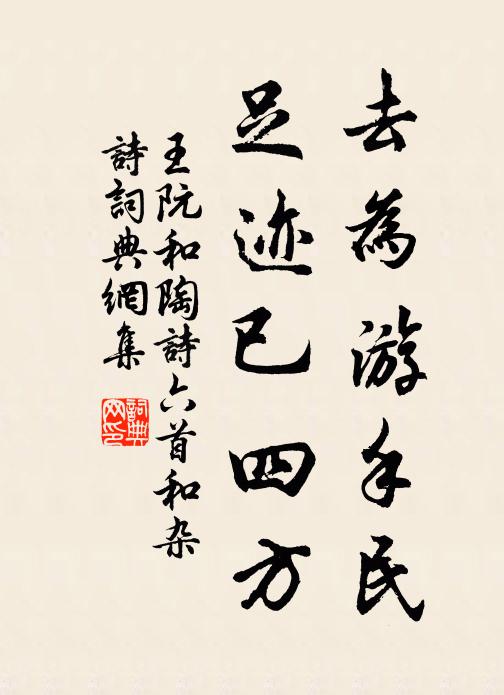 去為游手民
足迹已四方
王阮和陶詩六首和杂
詩詞典網集
詞典
网印